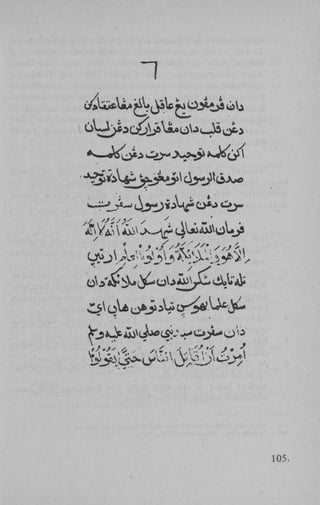 ٦
دان فرمفون يغ عاقل بالغ مڠاعتقادكن
دڠن قلب دان مڠاقراركن دڠن لسان
اكن كلمه توحيد سرت دڠن كلمه
صدق الرسول اتو مڠوجڤ شهادة توحيد
سرت دڠن شهادة رسول سفرت
فرمان الله تعالى شَهِدَ اللهُ أَنَّهُ لَا إِلَهَ
إِلَّا هُوَ وَالْمَلَائِكَةُ وَأُولُوا الْعِلْمِ ارتيڽ
تله تابك الله دان سكل ملائكة دان
سكل علما بهوس تياد توهن هاڽ اي
دان سفرت سبد نبي صلى الله عليه وسلم
أُمِرْتُ أَنْ أُقَاتِلَ النَّاسَ حَتَّى يَقُولُوا
105.